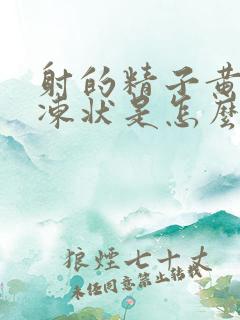 射的精子黄
凍状是怎麼
狼煙七十丈
未经同意禁止转载